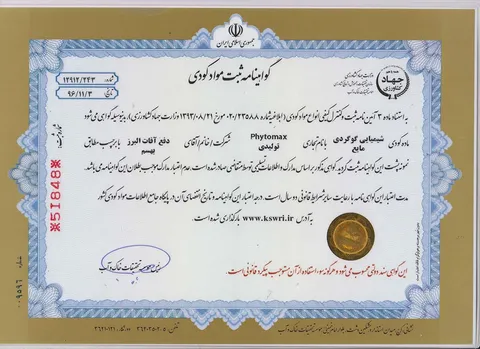 جمهوری اسلامی ایران
گواهینامه ثبت مواد کودی
شماره: ۱۳۹۱۲/۲۴۳
تاریخ: ۹۶/۱۱/۳
وزارت جهاد کشاورزی
جهاد
کشاورزی
به استناد ماده ۳ آیین نامه ثبت و کنترل کیفی انواع مواد کودی (ابلاغیه شماره ۰۲۰/۲۳۵۸۸ مورخ ۱۳۹۳/۰۸/۲۱ وزارت جهاد کشاورزی) بدینوسیله گواهی می شود
ماده کودی شیمیایی گوگردی مایع با نام تجاری Phytomax تولیدی شرکت/خانم/آقای دفع آفات البرز بهسم با برچسب مطابق
نمونه پشت این گواهینامه ثبت گردید. گواهی مذکور بر اساس مدارک و اطلاعات تسلیمی توسط متقاضی صادر شده است. عدم اعتبار مدارک موجب بطلان این گواهینامه می باشد.
مدت اعتبار این گواهی نامه با رعایت سایر شرایط قانونی دو سال است. درجه اعتبار این گواهینامه و تاریخ انقضای آن در پایگاه جامع اطلاعات مواد کودی کشور
به آدرس www.kswri.ir بارگذاری شده است.
رئیس موسسه تحقیقات خاک و آب
این گواهی سند دولتی محسوب می شود و هرگونه سوء استفاده از آن مستوجب پیگرد قانونی است
شماره ثبت:
*51848*
شماره ۰۰۹۵۹۶